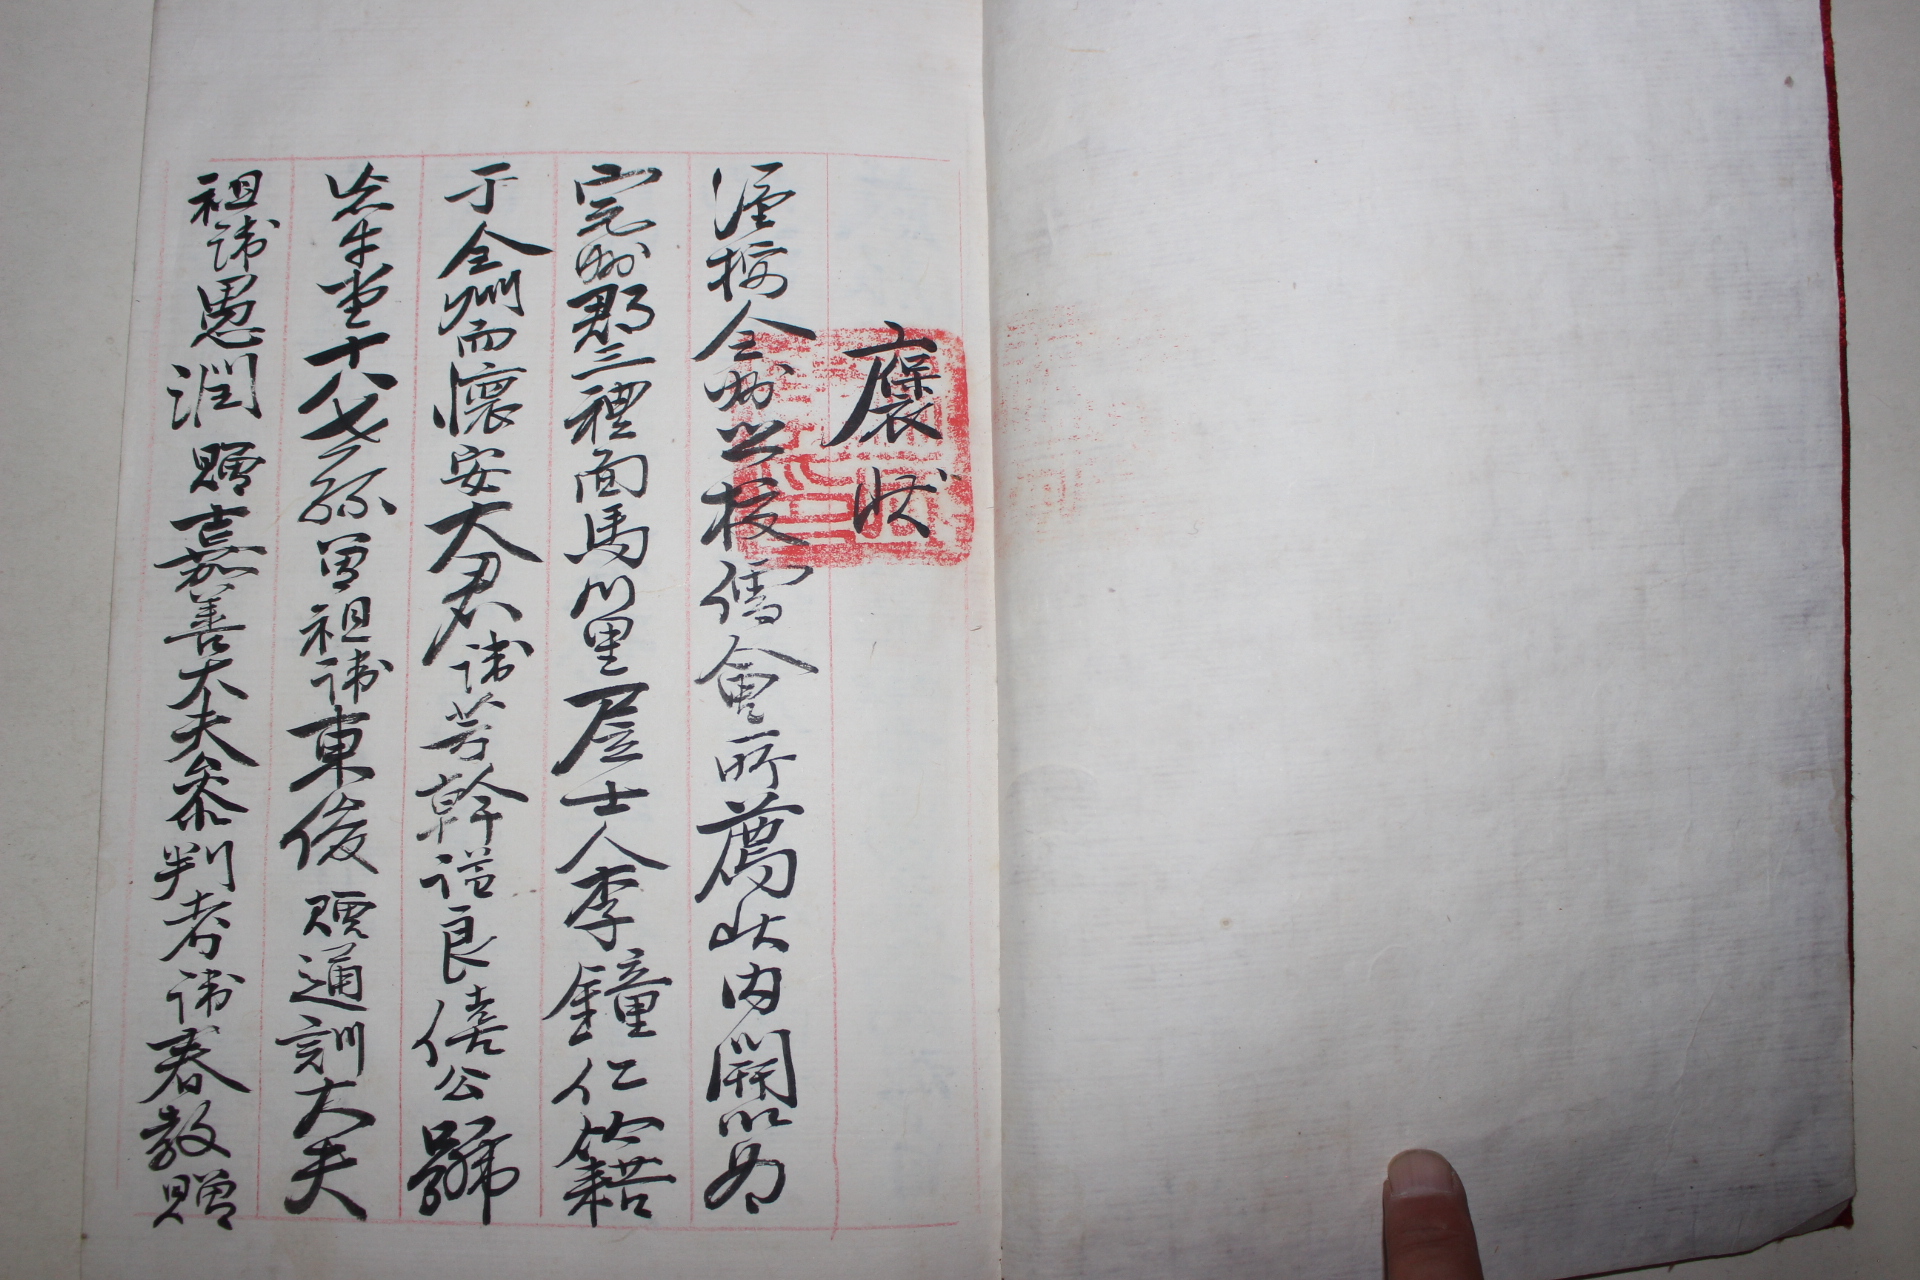 褒狀
謹按全州鄕校儒會所薦狀內開以爲
完州郡三禮面馬川里居士人李鐘仁籍
于全州而懷安大君諱芳幹諡良僖公號
忘牛堂十八世孫曾祖諱東俊贈通訓大夫
祖諱愚潤贈嘉善大夫參判考諱春敎贈